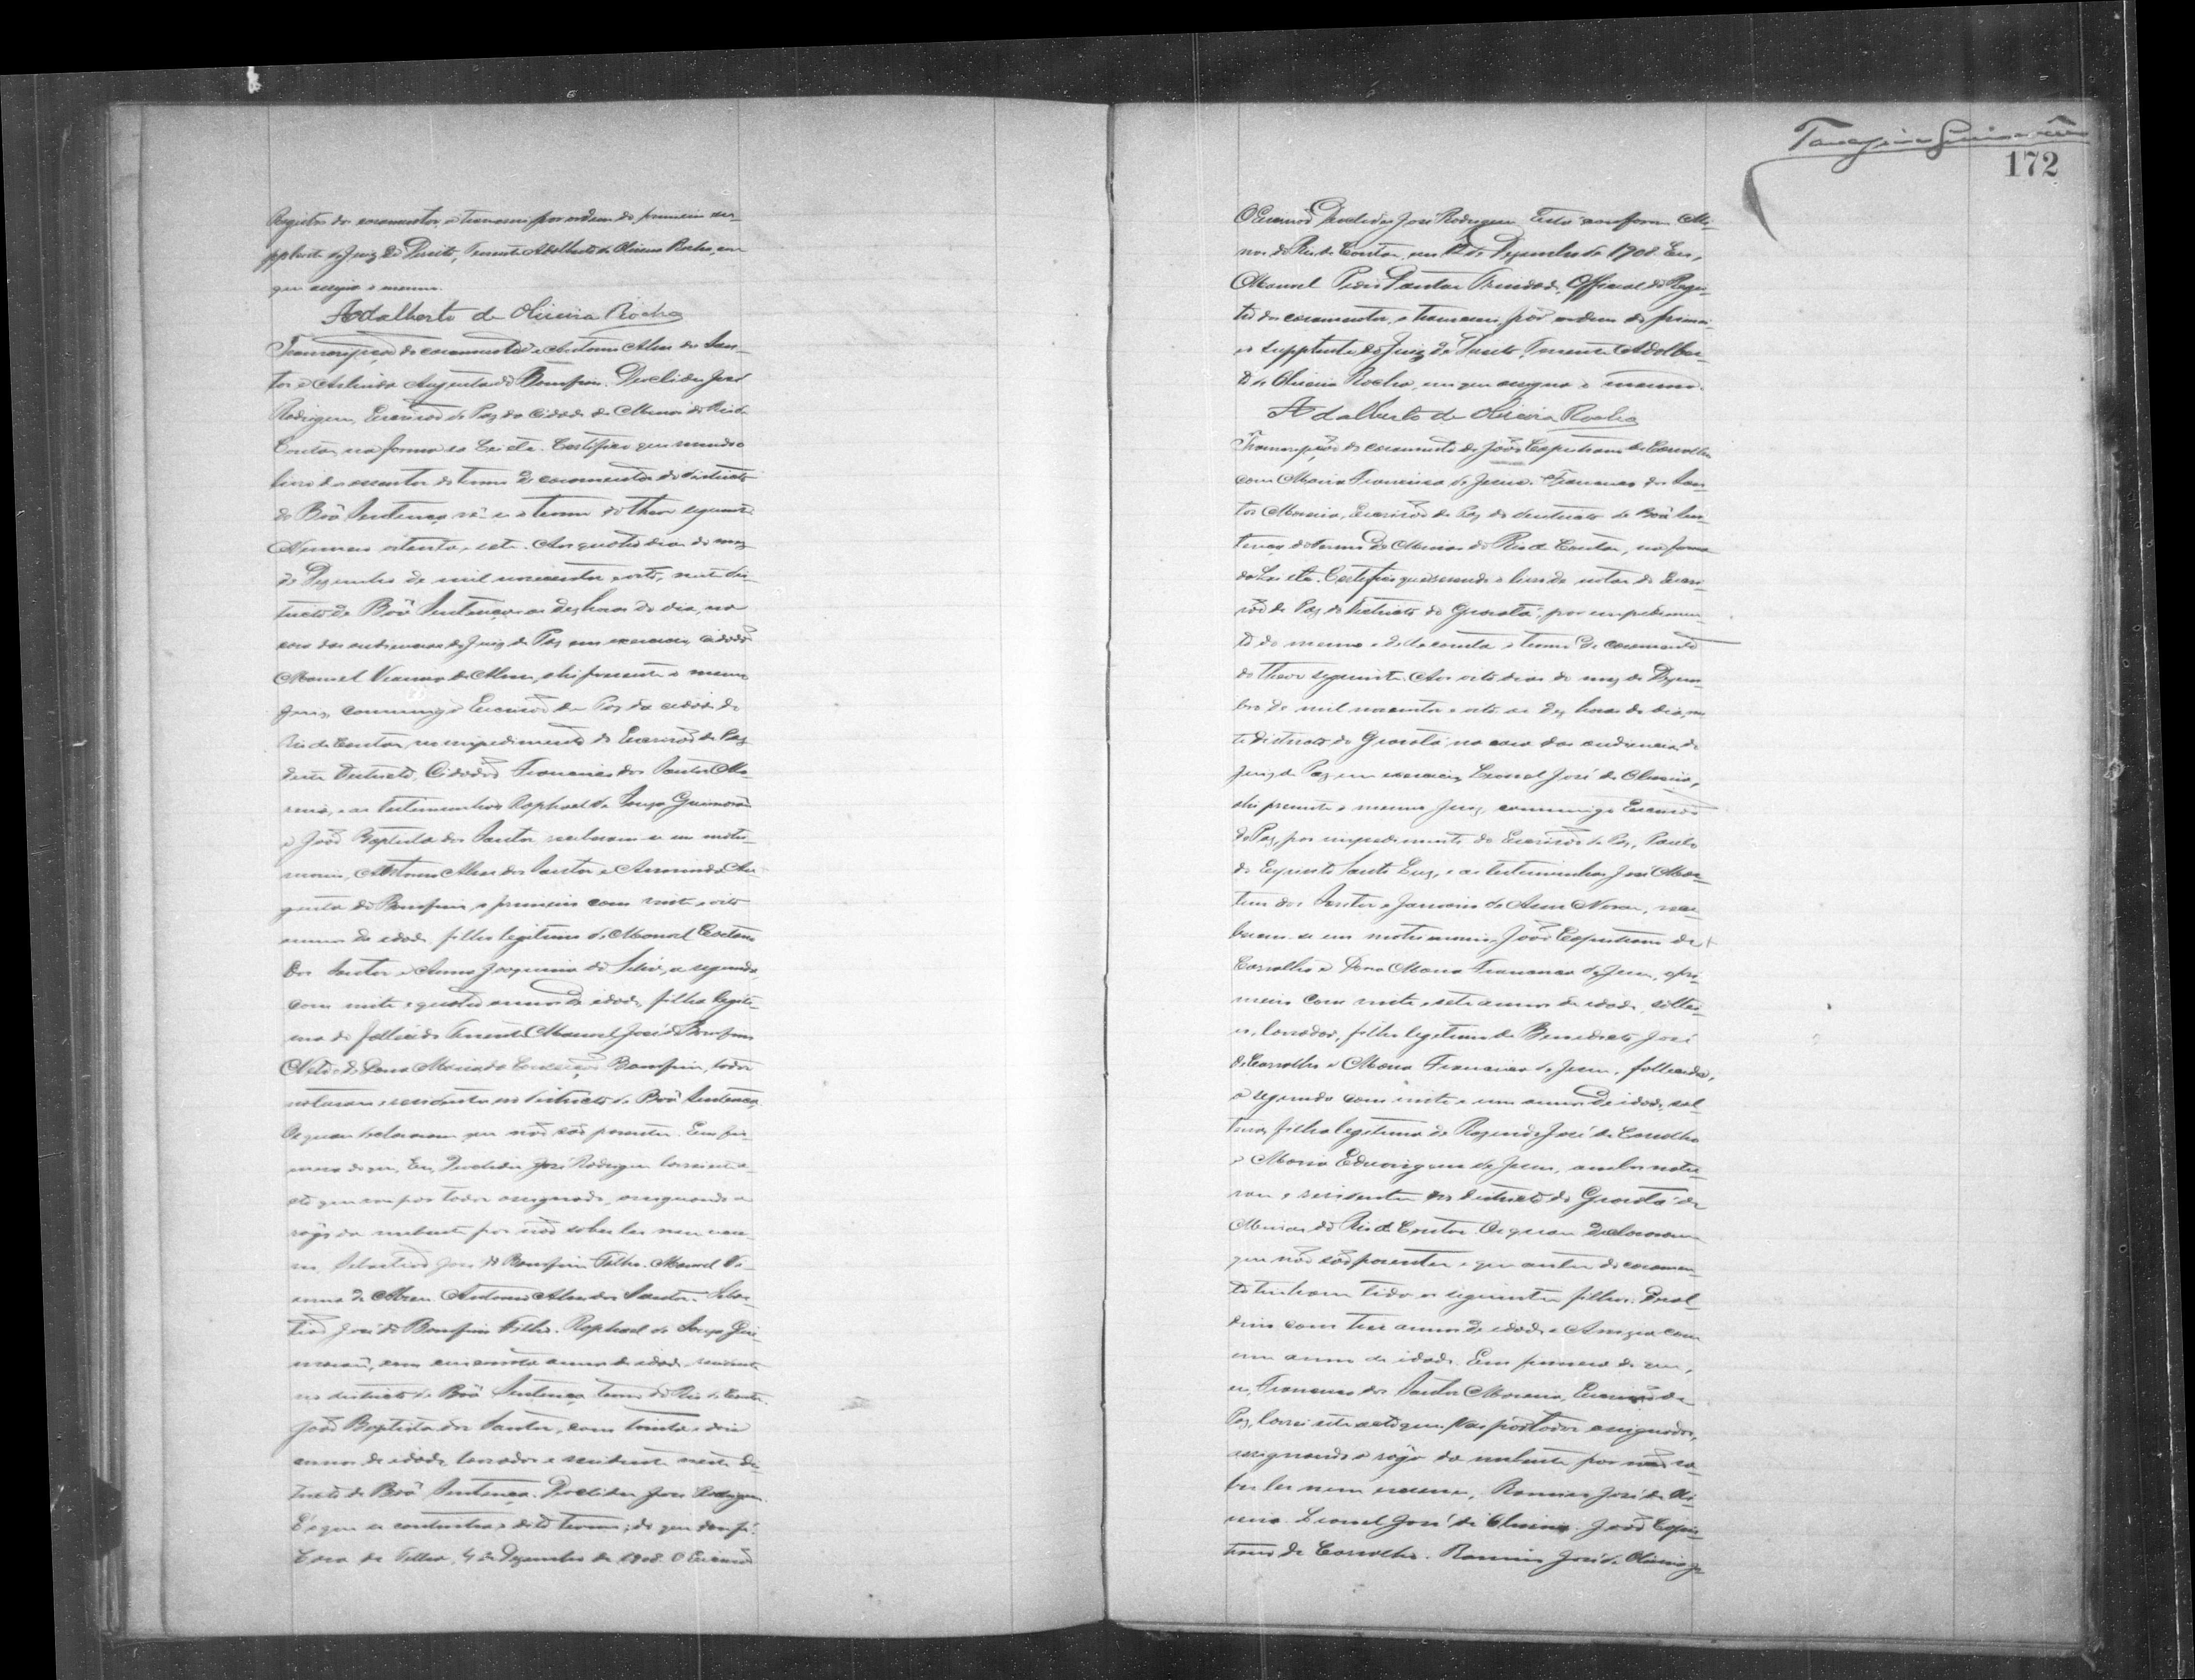 Registro de casamentos, o transcrevi por ordem do primeiro su-
pplente do Juiz de Direito, Tenente Adalberto de Oliveira Rocha, em
que assigna o mesmo.
Adalberto de Oliveira Rocha
Transcripção do casamento de Antonio Alves dos San-
tos e Arlinda Augusta do Bomfim. Deoclides José
Rodrigues, Escrivão de Paz da Cidade de Minas do Rio de
Contas, na forma da Lei etc. Certifico que revendo o
livro de assentos de termos de casamentos do districto
de Bôa Sentença, n'elle o termo do theor seguinte.
Numero oitenta e sete. Aos quatro dias do mez
de Dezembro de mil novecentos e oito, neste dis-
tricto de Bôa Sentença as dez horas do dia, na
casa das audiencias do Juiz de Paz em exercicio, cidadão
Manoel Vianna de Abreu, ahi presente o mesmo
Juiz, commigo Escrivão de Paz da cidade de
Rio de Contas, no impedimento do Escrivão de Paz
deste Districto, Cidadão Francisco dos Santos Mo-
reno, e as testemunhas Raphael de Souza Guimarães
e João Baptista dos Santos receberam-se em matri-
monio, Antonio Alves dos Santos e Arminda Au-
gusta do Bomfim, o primeiro com vinte e oito
annos de idade, filho legitimo de Manoel Caetano
dos Santos e Anna Joaquina da Silva, a segunda
com vinte e quatro annos de idade, filha legiti-
ma do fallecido Tenente Manoel José do Bomfim
Netto e de Dona Maria da Conceição Bomfim, todos
naturaes e residentes no districto de Bôa Sentença.
Os quaes declararam que não são parentes. Em fir-
meza do que, Eu, Deoclides José Rodrigues lavrei este
acto que vae por todos assignado, assignando a
rôgo da nubente por não saber ler nem escre-
ver, Sebastião José do Bomfim Filho. Manoel Vi-
anna de Abreu. Antonio Alves dos Santos. Sebas-
tião José do Bomfim Filho. Raphael de Souza Gui-
marães, com cincoenta annos de idade, residente
no districto de Bôa Sentença, termo do Rio de Contas.
João Baptista dos Santos, com trinta e dois
annos de idade, lavrador e residente neste dis-
tricto de Bôa Sentença. Deoclides José Rodrigues.
É o que se continha o dito termo; do que dou fé.
4 de Dezembro de 1908. O Escrivão
172
O Escrivão, Deoclides José Rodrigues. Está conforme. Mi-
nas do Rio de Contas, em 12 de Dezembro de 1908. Eu,
Manoel Pedro Dantas Trindade, Official do Regis-
tro dos casamentos, o transcrevi por ordem do primei-
ro supplente do Juiz de Direito, Tenente Adalber-
to de Oliveira Rocha, em que assigna o mesmo.
Adalberto de Oliveira Rocha
Transcripção do casamento de João Capistrano de Carvalho
com Maria Francisca de Jesus. Francisco dos San-
tos Moreno, Escrivão de Paz do districto de Bôa Sen-
tença do termo de Minas do Rio de Contas, na forma
da Lei etc. Certifico que revendo o livro de notas do Escri-
vão de Paz do districto do Gravatá, por impedimen-
to do mesmo e delle consta o termo de casamento
do theor seguinte. Aos oito dias do mez de Dezem-
bro de mil novecentos e oito as dez horas do dia, nes-
te districto do Gravatá, na casa das audiencias do
Juiz de Paz em exercicio, Leonel José de Oliveira,
ahi presente o mesmo Juiz, commigo Escrivão
de Paz, por impedimento do Escrivão de Paz, Paulo
do Espirito Santo Luz, e as testemunhas José Mar-
tins dos Santos e Januario de Assis Novaes, rece-
beram-se em matrimonio, João Capistrano de
Carvalho e Dona Maria Francisca de Jesus, o pri-
meiro com vinte e sete annos de idade, soltei-
ro, lavrador, filho legitimo de Benedicto José
de Carvalho e Maria Francisca de Jesus, fallecida,
a segunda com vinte e um annos de idade, sol-
teira, filha legitima de Rozendo José de Carvalho
e Maria Eduwirgens de Jesus, ambos natu-
raes e residentes no districto do Gravatá de
Minas do Rio de Contas. Os quaes declararam
que não são parentes e que antes do casamen-
to tinham tido os seguintes filhos:
com tres annos de idade e com
um anno de idade. Em firmeza do que,
eu, Francisco dos Santos Moreno, Escrivão de
Paz, lavrei este acto que vae por todos assignados,
assignando a rôgo da nubente por não sa-
ber ler nem escrever, Ramiro José de Oli-
veira. Leonel José de Oliveira. João Capis-
trano de Carvalho. Ramiro José de Oliveira